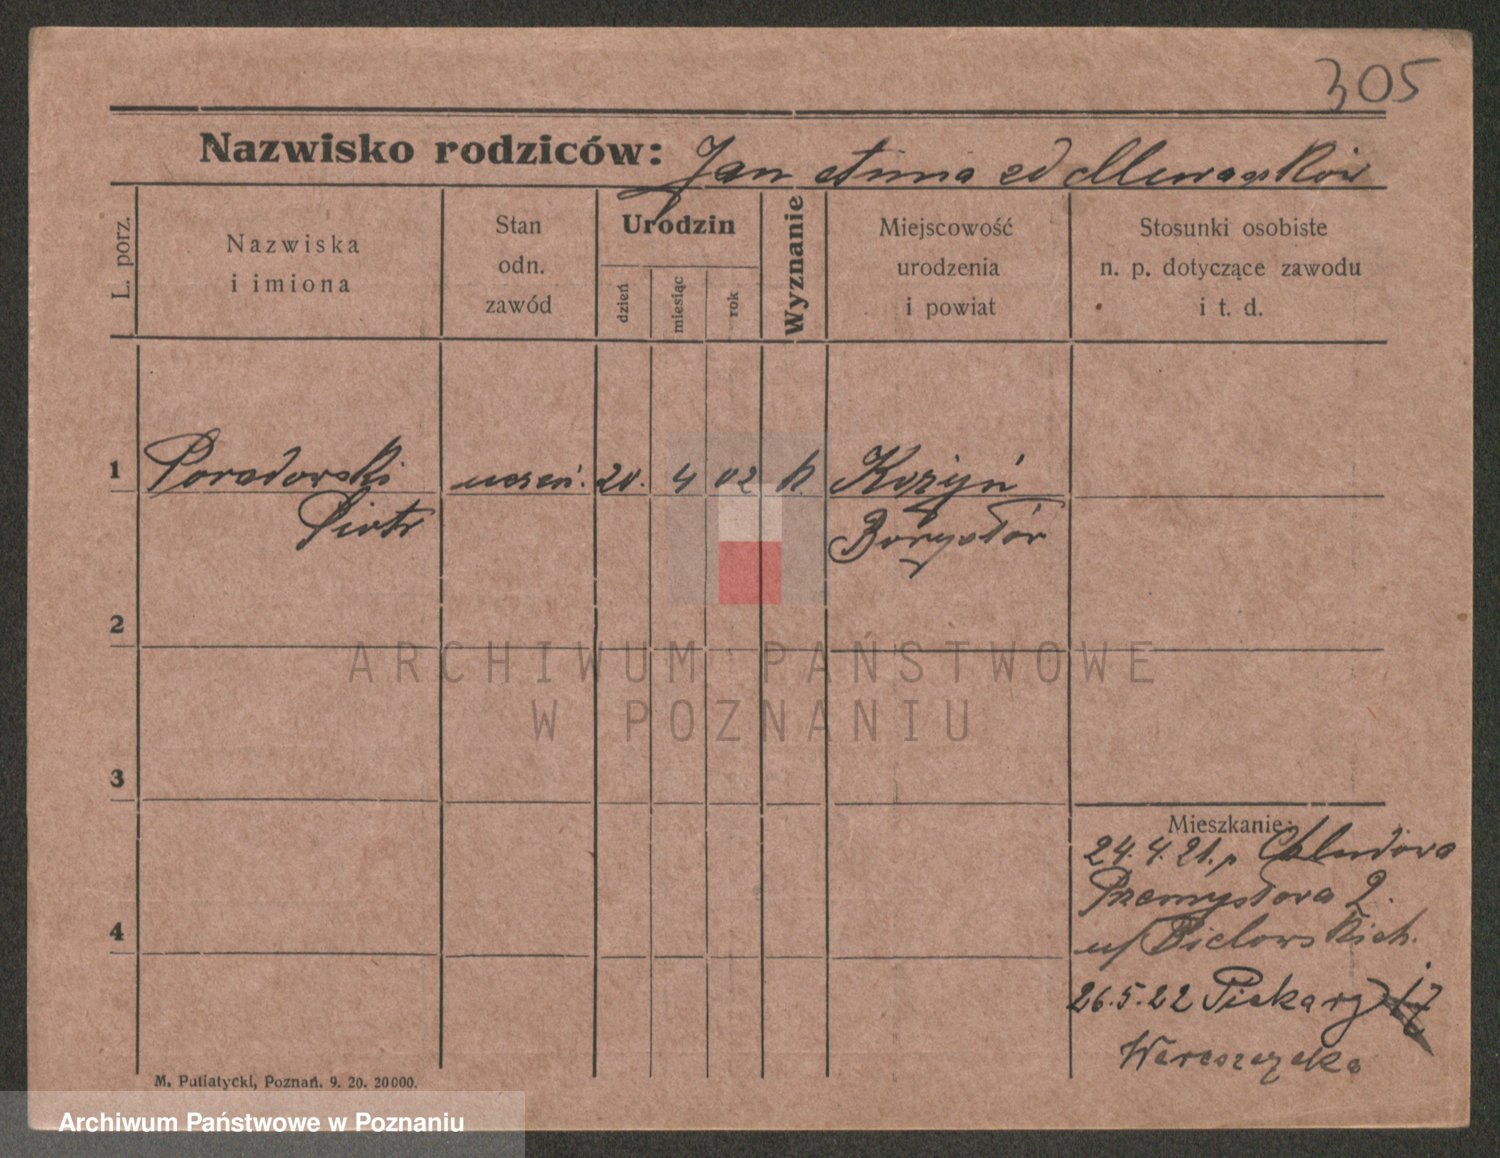 305
Nazwisko rodziców: Jan Anna zd
L. porz.
Nazwiska
i imiona
Stan
odn.
zawód
Urodzin
dzień
miesiąc
rok
Wyznanie
Miejscowość
urodzenia
i powiat
Stosunki osobiste
n. p. dotyczące zawodu
i t. d.
1 Poradowski uczeń. 20. 4 02 k
Piotr Borysław
2
3
4
ARCHIWUM PAŃSTWOWE
W POZNANIU
Mieszkanie:
24.4.21. p
Przemysłowa 2.
u/ Bielowskich.
26.5.22 Piekary 17
Wereszczaka
M. Putiatycki, Poznań. 9. 20. 20000.
Archiwum Państwowe w Poznaniu